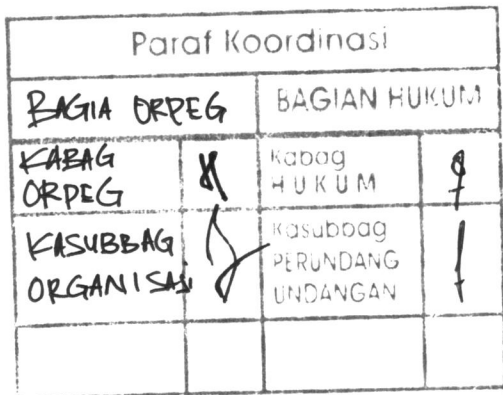 Paraf Koordinasi
BAGIA ORPEG
BAGIAN HUKUM
KABAG
ORPEG
Kabag
HUKUM
KASUBBAG
ORGANISASI
Kasubbag
PERUNDANG
UNDANGAN